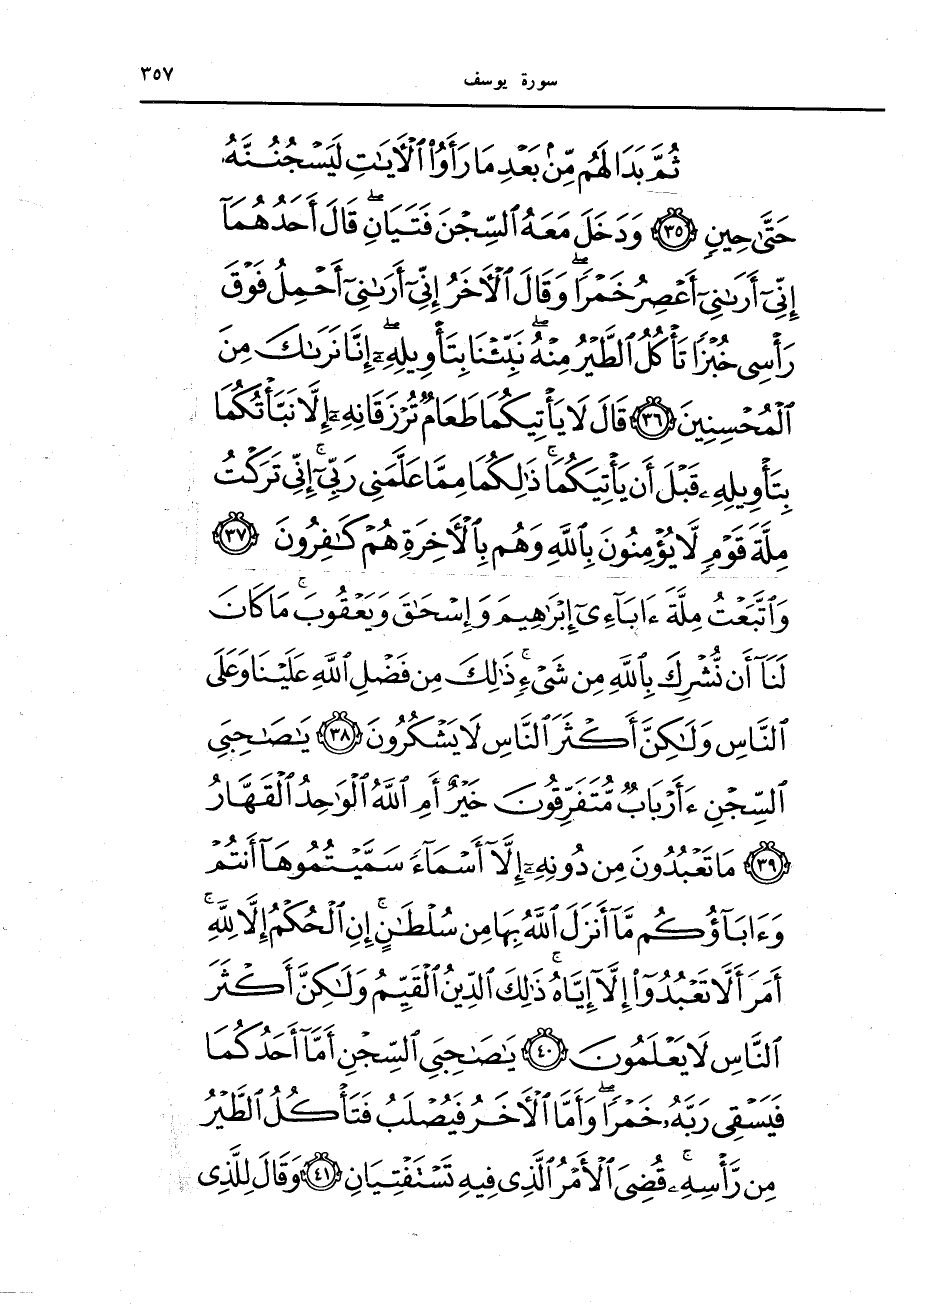 سورة يوسف ٣٥٧
ثُمَّ بَدَا لَهُم مِّنۢ بَعْدِ مَا رَأَوُا۟ ٱلْـَٔايَـٰتِ لَيَسْجُنُنَّهُۥ
حَتَّىٰ حِينٍ ۝٣٥ وَدَخَلَ مَعَهُ ٱلسِّجْنَ فَتَيَانِ ۖ قَالَ أَحَدُهُمَآ
إِنِّىٓ أَرَىٰنِىٓ أَعْصِرُ خَمْرًا ۖ وَقَالَ ٱلْـَٔاخَرُ إِنِّىٓ أَرَىٰنِىٓ أَحْمِلُ فَوْقَ
رَأْسِى خُبْزًا تَأْكُلُ ٱلطَّيْرُ مِنْهُ ۖ نَبِّئْنَا بِتَأْوِيلِهِۦٓ ۖ إِنَّا نَرَىٰكَ مِنَ
ٱلْمُحْسِنِينَ ۝٣٦ قَالَ لَا يَأْتِيكُمَا طَعَامٌ تُرْزَقَانِهِۦٓ إِلَّا نَبَّأْتُكُمَا
بِتَأْوِيلِهِۦ قَبْلَ أَن يَأْتِيَكُمَا ۚ ذَٰلِكُمَا مِمَّا عَلَّمَنِى رَبِّىٓ ۚ إِنِّى تَرَكْتُ
مِلَّةَ قَوْمٍ لَّا يُؤْمِنُونَ بِٱللَّهِ وَهُم بِٱلْـَٔاخِرَةِ هُمْ كَـٰفِرُونَ ۝٣٧
وَٱتَّبَعْتُ مِلَّةَ ءَابَآءِىٓ إِبْرَٰهِيمَ وَإِسْحَـٰقَ وَيَعْقُوبَ ۚ مَا كَانَ
لَنَآ أَن نُّشْرِكَ بِٱللَّهِ مِن شَىْءٍ ۚ ذَٰلِكَ مِن فَضْلِ ٱللَّهِ عَلَيْنَا وَعَلَى
ٱلنَّاسِ وَلَـٰكِنَّ أَكْثَرَ ٱلنَّاسِ لَا يَشْكُرُونَ ۝٣٨ يَـٰصَـٰحِبَىِ
ٱلسِّجْنِ ءَأَرْبَابٌ مُّتَفَرِّقُونَ خَيْرٌ أَمِ ٱللَّهُ ٱلْوَٰحِدُ ٱلْقَهَّارُ
۝٣٩ مَا تَعْبُدُونَ مِن دُونِهِۦٓ إِلَّآ أَسْمَآءً سَمَّيْتُمُوهَآ أَنتُمْ
وَءَابَآؤُكُم مَّآ أَنزَلَ ٱللَّهُ بِهَا مِن سُلْطَـٰنٍ ۚ إِنِ ٱلْحُكْمُ إِلَّا لِلَّهِ ۚ
أَمَرَ أَلَّا تَعْبُدُوٓا۟ إِلَّآ إِيَّاهُ ۚ ذَٰلِكَ ٱلدِّينُ ٱلْقَيِّمُ وَلَـٰكِنَّ أَكْثَرَ
ٱلنَّاسِ لَا يَعْلَمُونَ ۝٤٠ يَـٰصَـٰحِبَىِ ٱلسِّجْنِ أَمَّآ أَحَدُكُمَا
فَيَسْقِى رَبَّهُۥ خَمْرًا ۖ وَأَمَّا ٱلْـَٔاخَرُ فَيُصْلَبُ فَتَأْكُلُ ٱلطَّيْرُ
مِن رَّأْسِهِۦ ۚ قُضِىَ ٱلْأَمْرُ ٱلَّذِى فِيهِ تَسْتَفْتِيَانِ ۝٤١ وَقَالَ لِلَّذِى